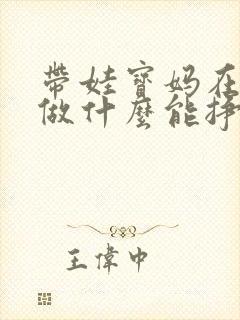 帶娃寶媽在
做什麼能掙
王偉中